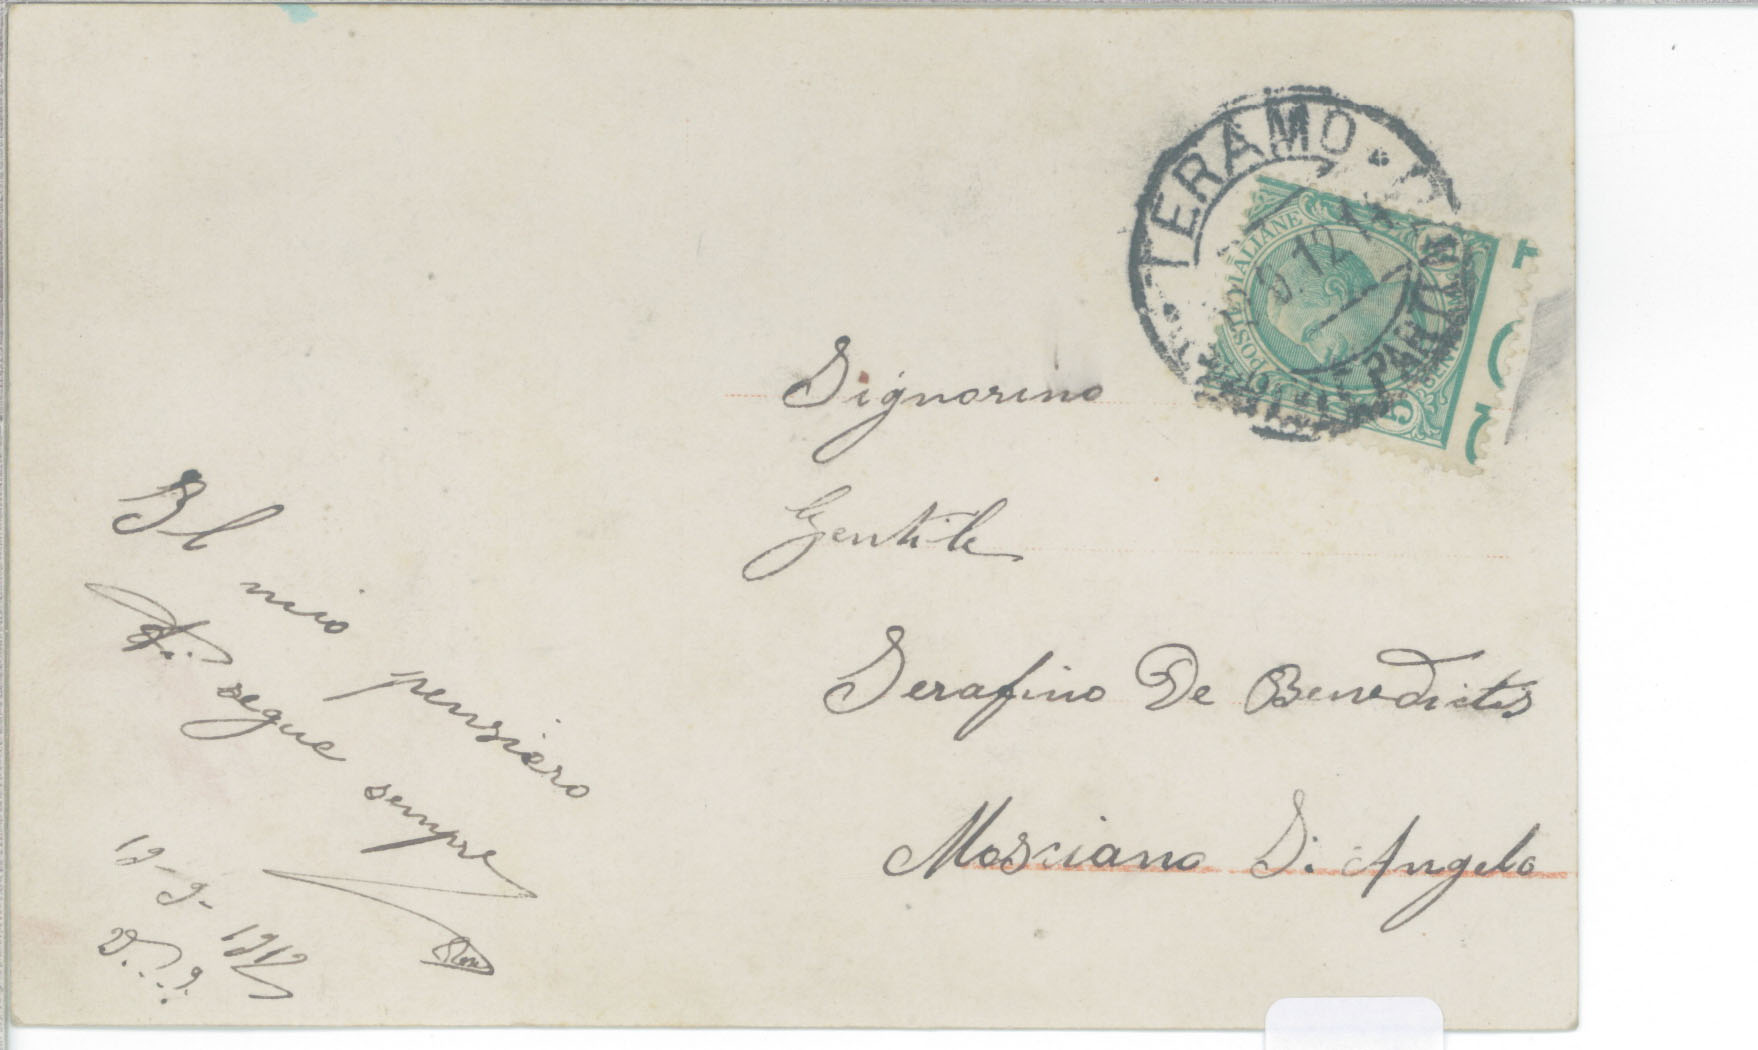 TERAMO
PARTENZA
9.12
POSTE ITALIANE
5
Signorino
Gentile
Serafino De Benedictis
Mosciano S. Angelo
Il
mio
pensiero
segue
sempre
19-9-
1912